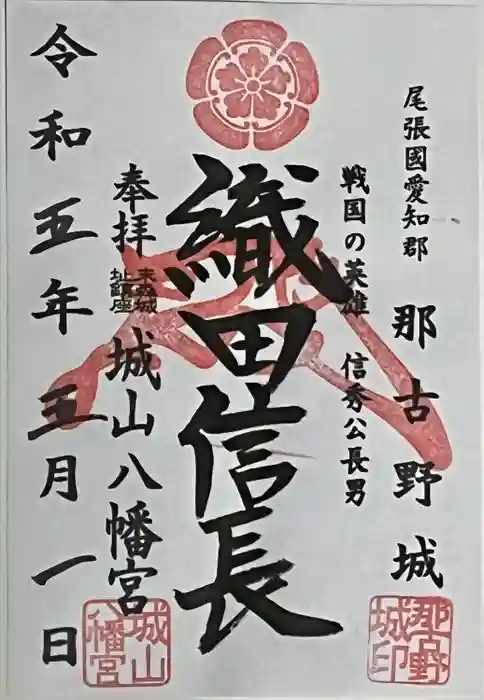 尾張國愛知郡 那古野城
戦国の英雄 信秀公長男
織田信長
奉拝 末森城址鎮座 城山八幡宮
令和五年 五月一日
城山八幡宮
那古野城印